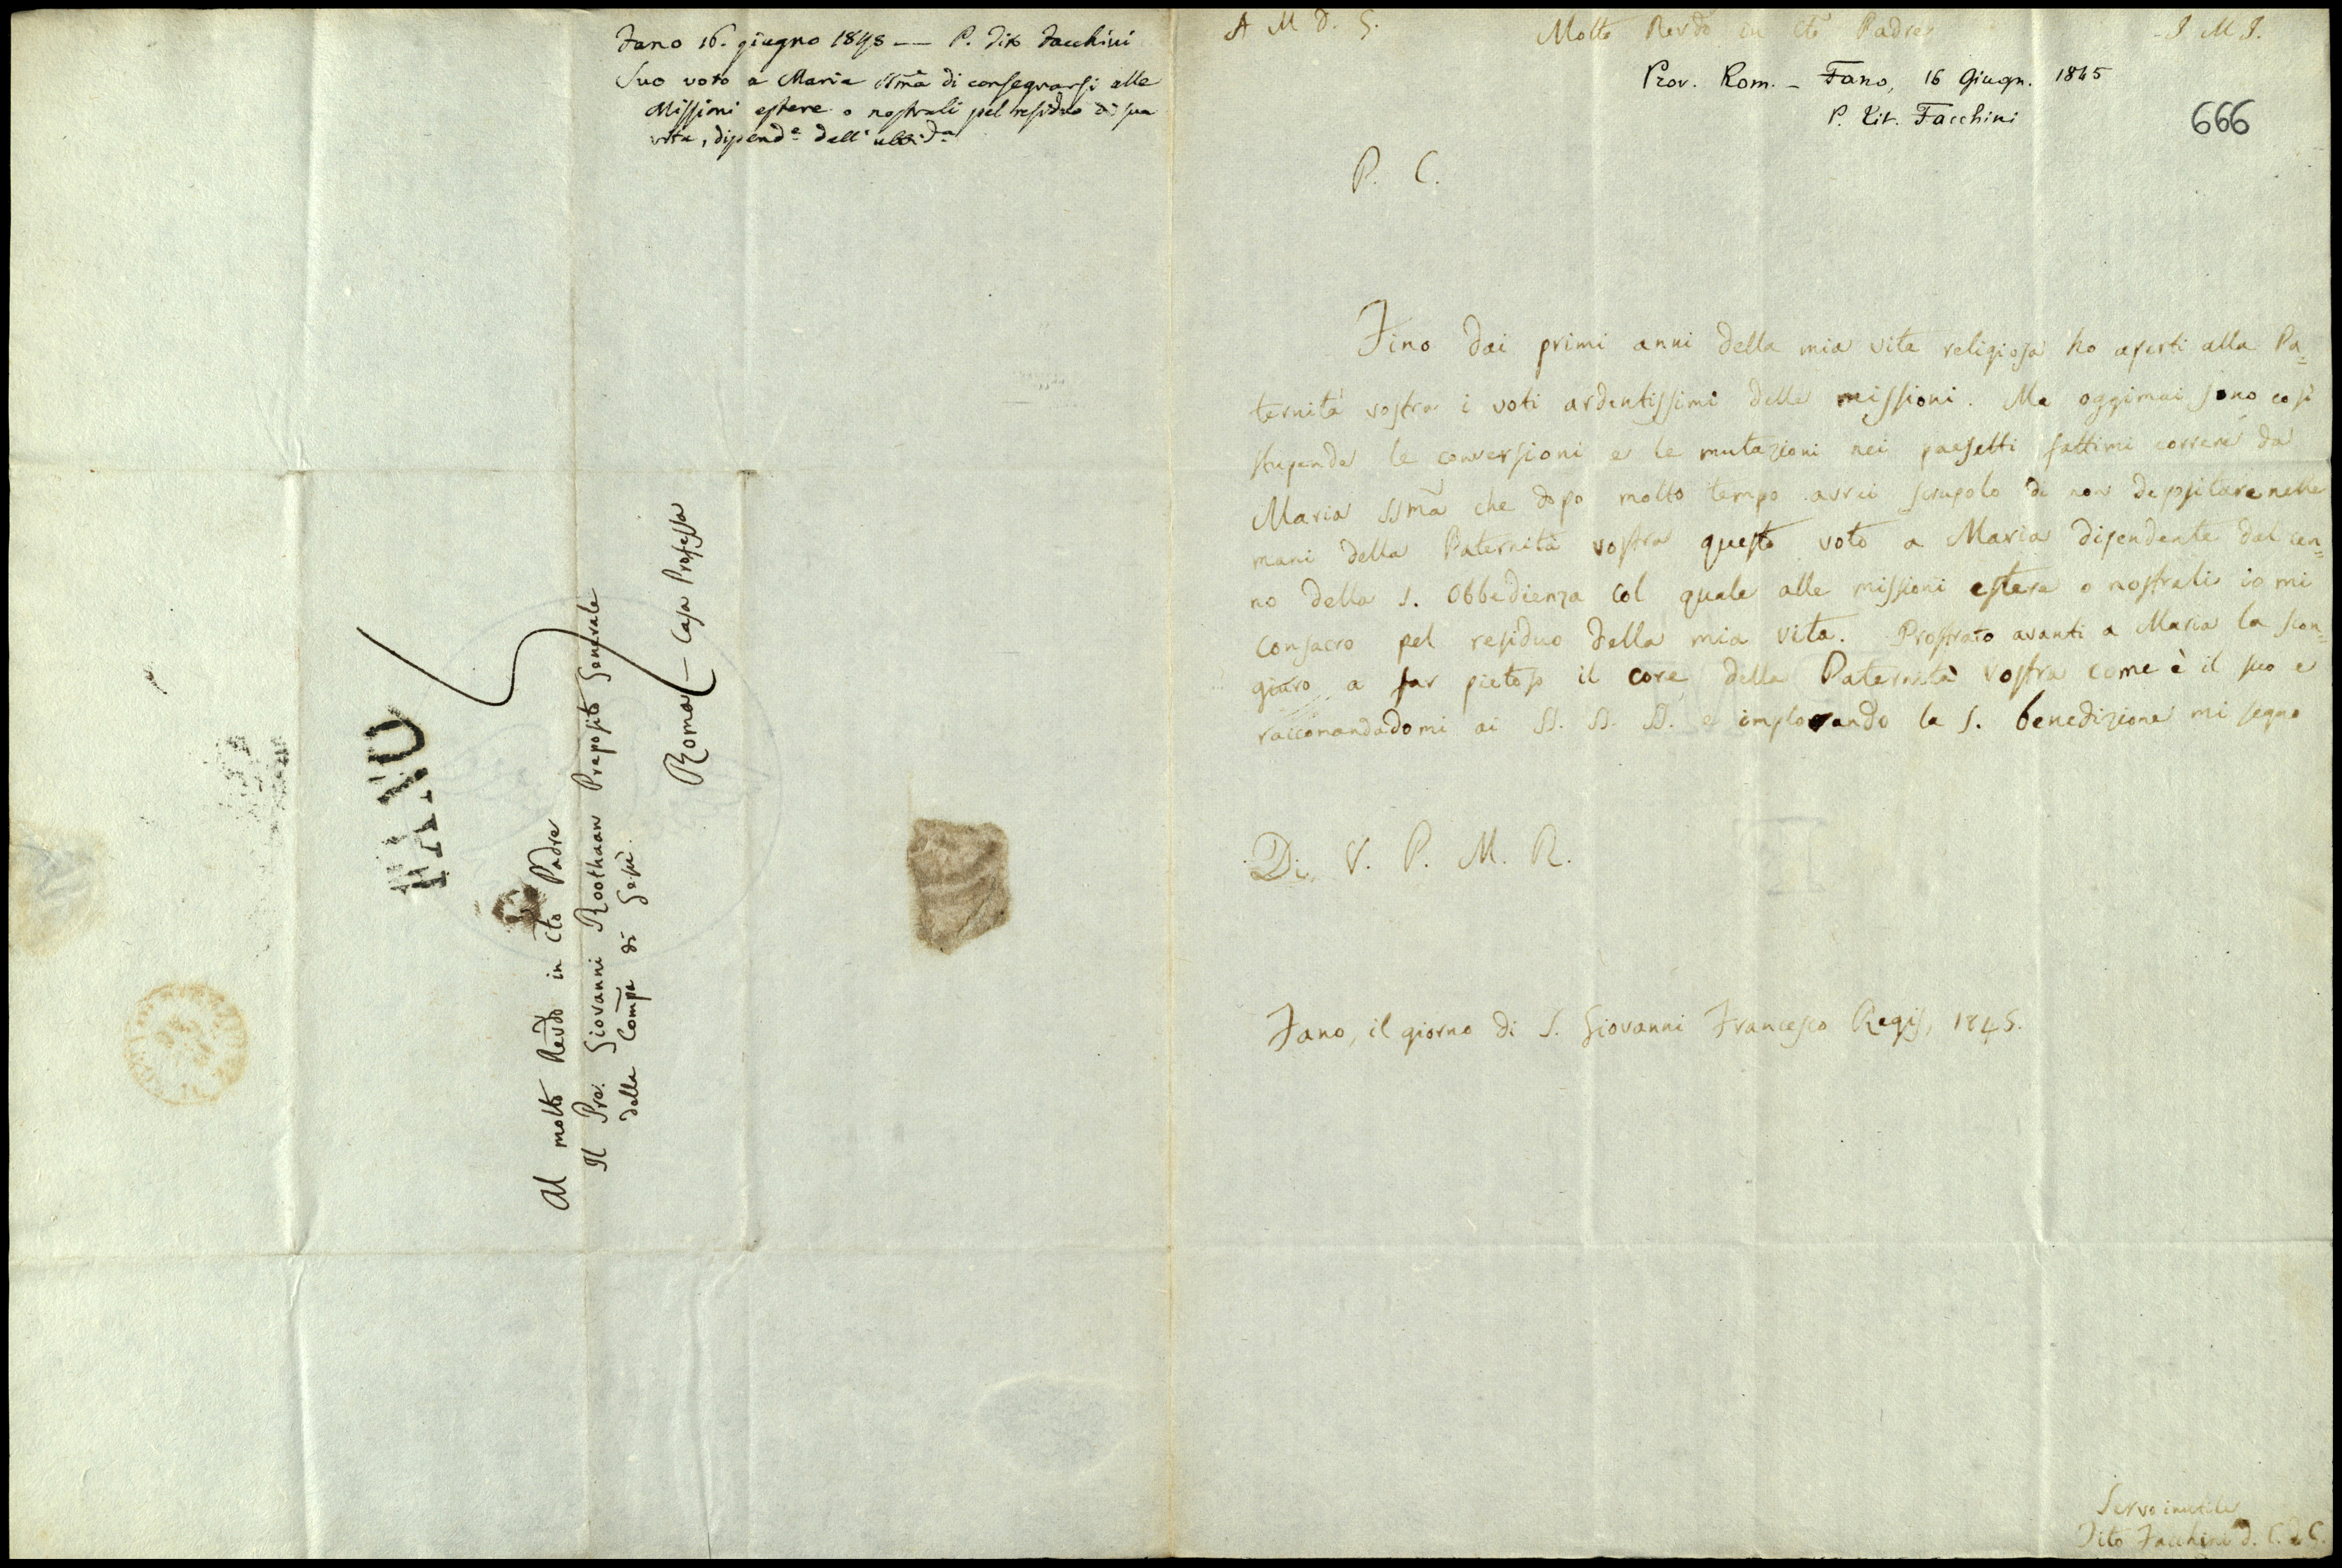 Fano 16. giugno 1845 — P. Tito Facchini
Suo voto a Maria SSma di consegrarsi alle
Missioni estere o nostrali pel residuo di sua
vita, dipende dall'ubbida
FANO
Al molto Revdo in Cto Padre
Il Pre. Giovanni Roothaan Preposito Generale
della Compa di Gesù.
Roma — Casa Professa
A M D. G.
Molto Revdo in Cto Padre
J. M J.
Prov. Rom. — Fano, 16 Giugn. 1845
P. Tit. Facchini
666
P. C.
Fino dai primi anni della mia vita religiosa ho aperti alla Pa=
ternità vostra i voti ardentissimi delle missioni. Ma oggimai sono così
stupende le conversioni e le mutazioni nei paesetti fattimi correre da
Maria SSma che dopo molto tempo avrei scrupolo di non depositare nelle
mani della Paternità vostra questo voto a Maria dipendente dal cen=
no della S. Obbedienza col quale alle missioni estere o nostrali io mi
consacro pel residuo della mia vita. Prostrato avanti a Maria la scon=
giuro a far pietoso il core della Paternità vostra come è il suo e
raccomandadomi ai SS. SS. SS. e implorando la S. benedizione mi segno
Di V. P. M. R.
Fano, il giorno di S. Giovanni Francesco Regis, 1845.
Servo inutile
Tito Facchini d. C. d. G.